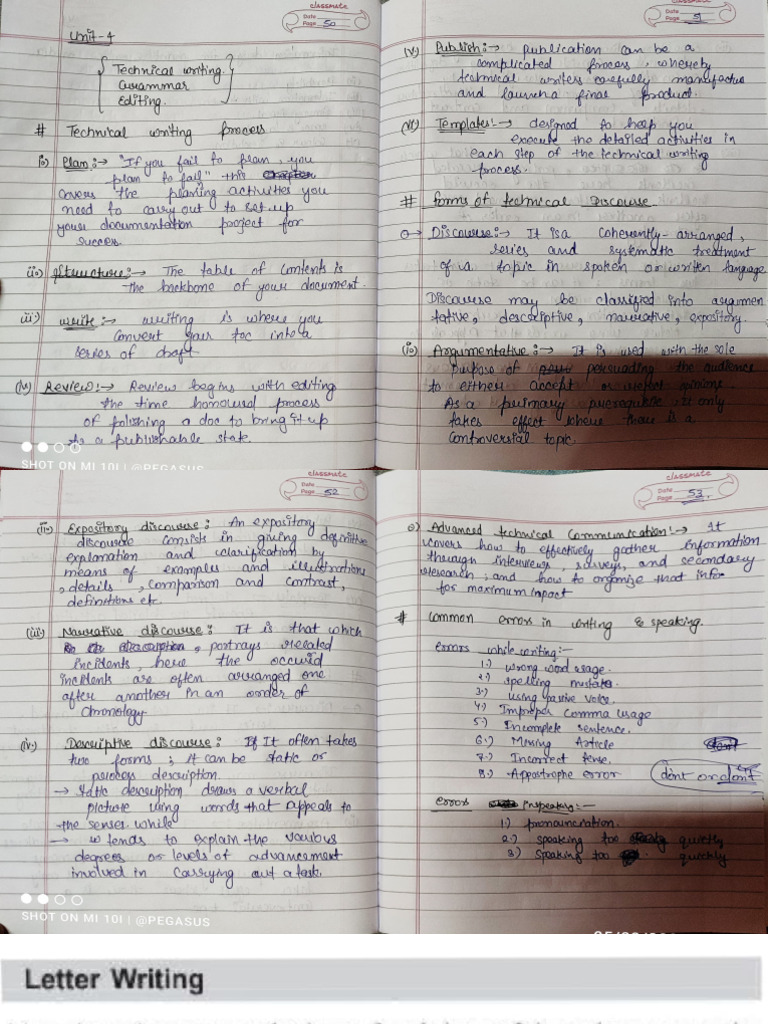 classmate
Date
Page 50
Unit-4
Technical writing.
Grammar
Editing.
# Technical writing process
i) Plan:→ "If you fail to plan, you
plan to fail" this
covers the planing activities you
need to carry out to set up
your documentation project for
success.
ii) Structure:→ The table of contents is
the backbone of your document.
iii) write:→ writing is where you
convert your toc into a
series of draft
(iv) Review:→ Review begins with editing
the time honoured process
of polishing a doc to bring it up
to a publishable state.
SHOT ON MI 10I | @PEGASUS
classmate
Date
Page 51
(v) Publish:→ publication can be a
complicated process, whereby
technical writers carefully manufactue
and launch a final product.
(vi) Templates:→ designed to help you
execute the detailed activities in
each step of the technical writing
process.
# forms of technical Discourse
→ Discourse:→ It is a coherently-arranged,
series and systematic treatment
of a topic in spoken or written language.
Discourse may be classified into argumen
tative, descriptive, narrative, expository.
(i) Argumentative:→ It is used with the sole
purpose of persuading the audience
to either accept or reject opinions.
As a primary prerequisite it only
takes effect where there is a
controversial topic.
classmate
Date
Page 52
(ii) Expository discourse: An expository
discourse consists in giving definitive
explanation and clarification by
means of examples and illustrations
, details, comparison and contrast,
definitions etc.
(iii) Narrative discourse: It is that which
, portrays related
incidents, here the occurd
incidents are often arranged one
after another in an order of
chronology
(iv) Descriptive discourse: If It often takes
two forms; it can be static or
process description.
→ static description draws a verbal
picture using words that appeals to
the senses while
→ tends to explain the various
degrees or levels of advancement
involved in carrying out a task.
SHOT ON MI 10I | @PEGASUS
classmate
Date
Page 53.
Advanced technical Communication:→ It
covers how to effectively gather information
through interviews, surveys, and secondary
research; and how to organize that info
for maximum impact
# common errors in writing & speaking.
errors while writing:-
1.) wrong word usage.
2.) spelling mistake.
3.) using passive voice.
4.) Improper comma usage
5.) Incomplete sentence.
6.) Missing Article
7.) Incorrect tense.
8.) Appostrophe error
dont or don't
error in speaking:-
1.) pronounciation.
2.) speaking too quietly
3) speaking too quickly
Letter Writing